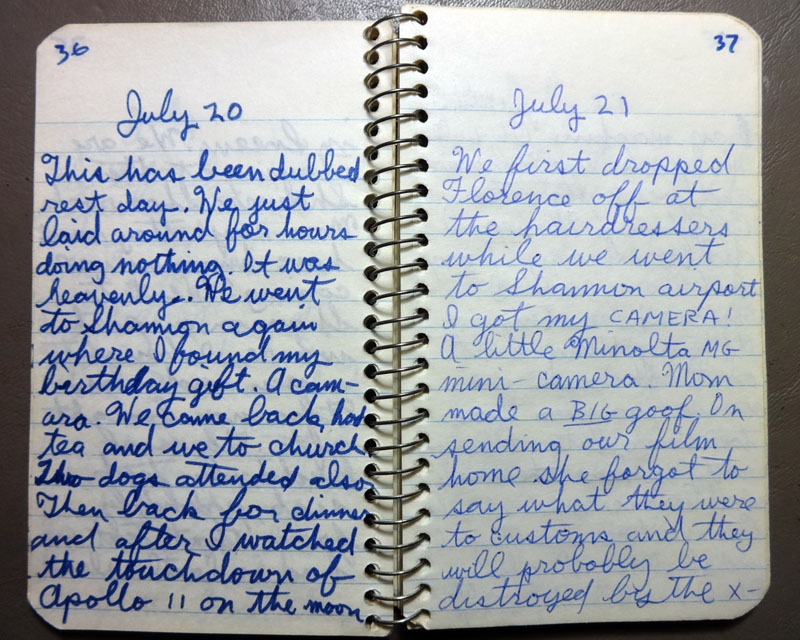 36
July 20
This has been dubbed
rest day. We just
laid around for hours
doing nothing. It was
heavenly. We went
to Shannon again
where I found my
berthday gift. A cam-
ara. We came back, had
tea and we to church.
Two dogs attended also
Then back for dinner
and after I watched
the touchdown of
Apollo 11 on the moon
37
July 21
We first dropped
Florence off at
the hairdressers
while we went
to Shannon airport
I got my CAMERA!
A little Minolta MG
mini-camera. Mom
made a BIG goof. On
sending our film
home she forgot to
say what they were
to customs and they
will probably be
distroyed by the x-